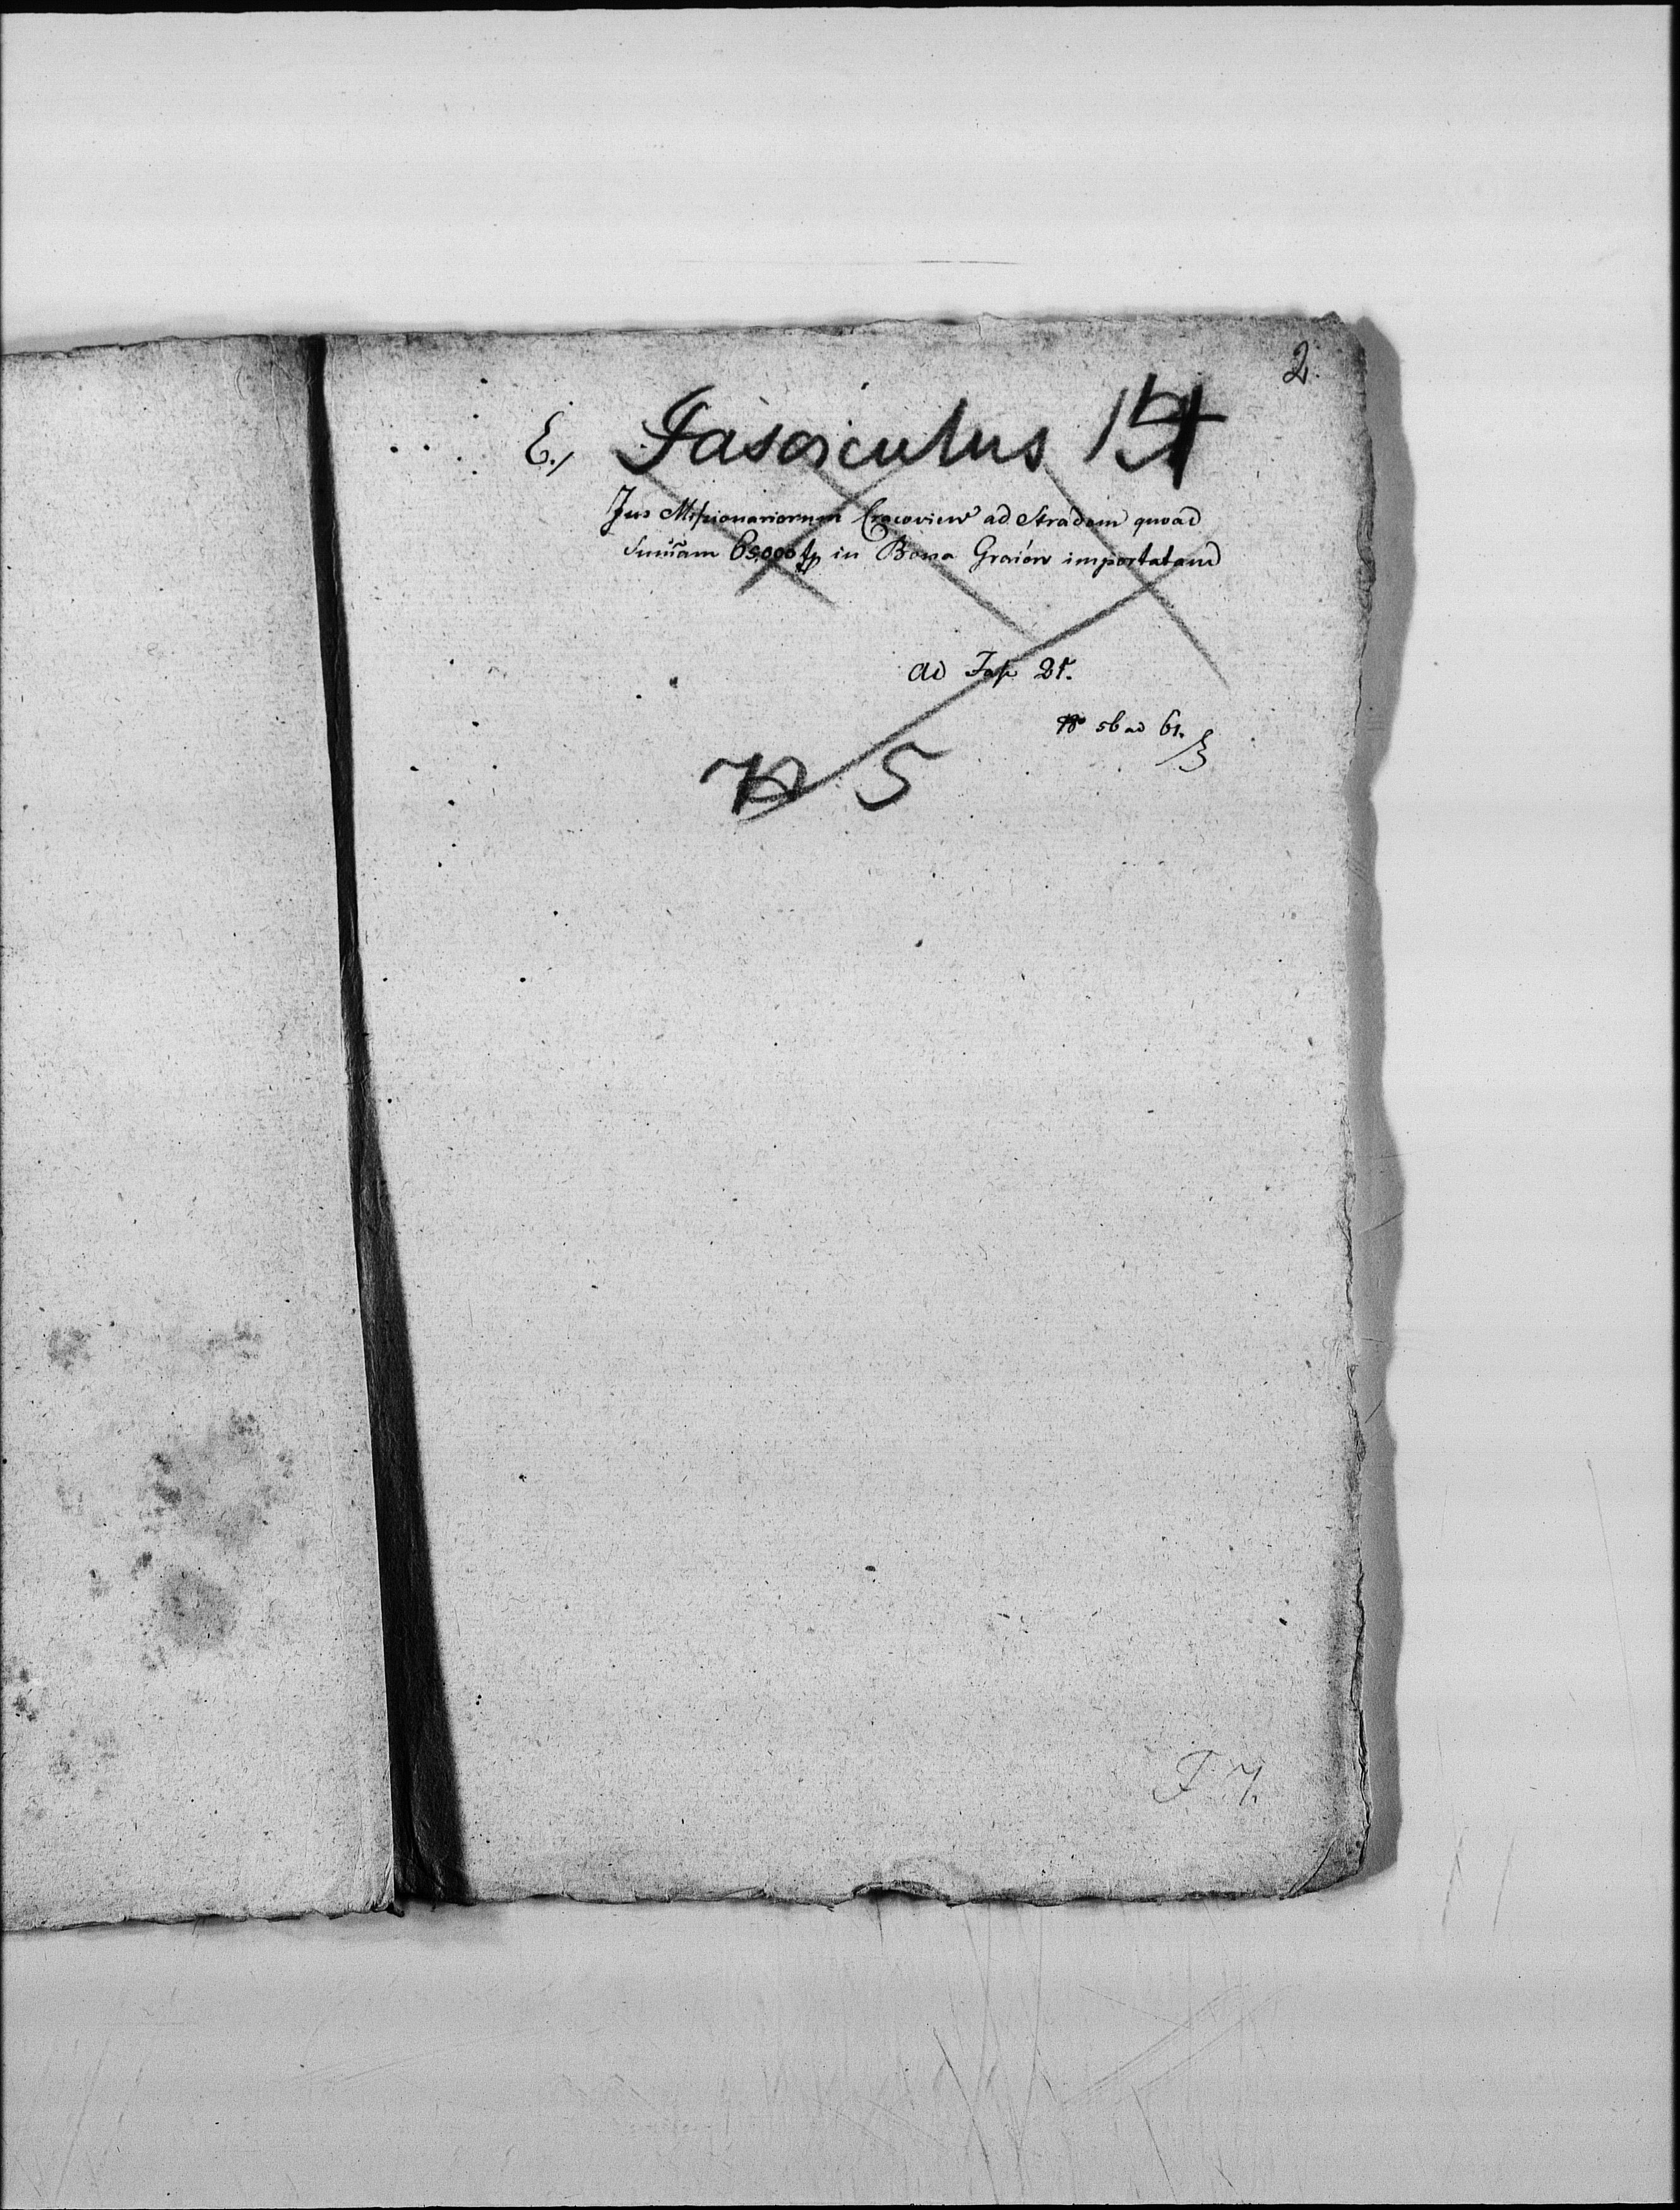 2.
E./ Fasciculus
Jus Missionariorum Cracoviæ ad Stradom quoad
Sum̃am 65000 fp in Bona Graiów importatam
Ad Fass 21.
No 56 ad 61.
No 5
F. 7.